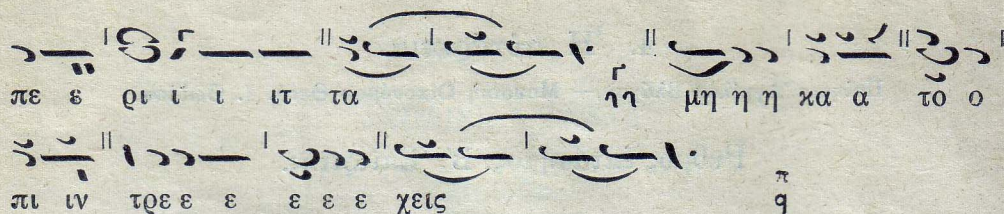 πε ε ρι ι ι ιτ τα μη η η κα α το ο
πι ιν τρε ε ε ε ε ε χεις π q